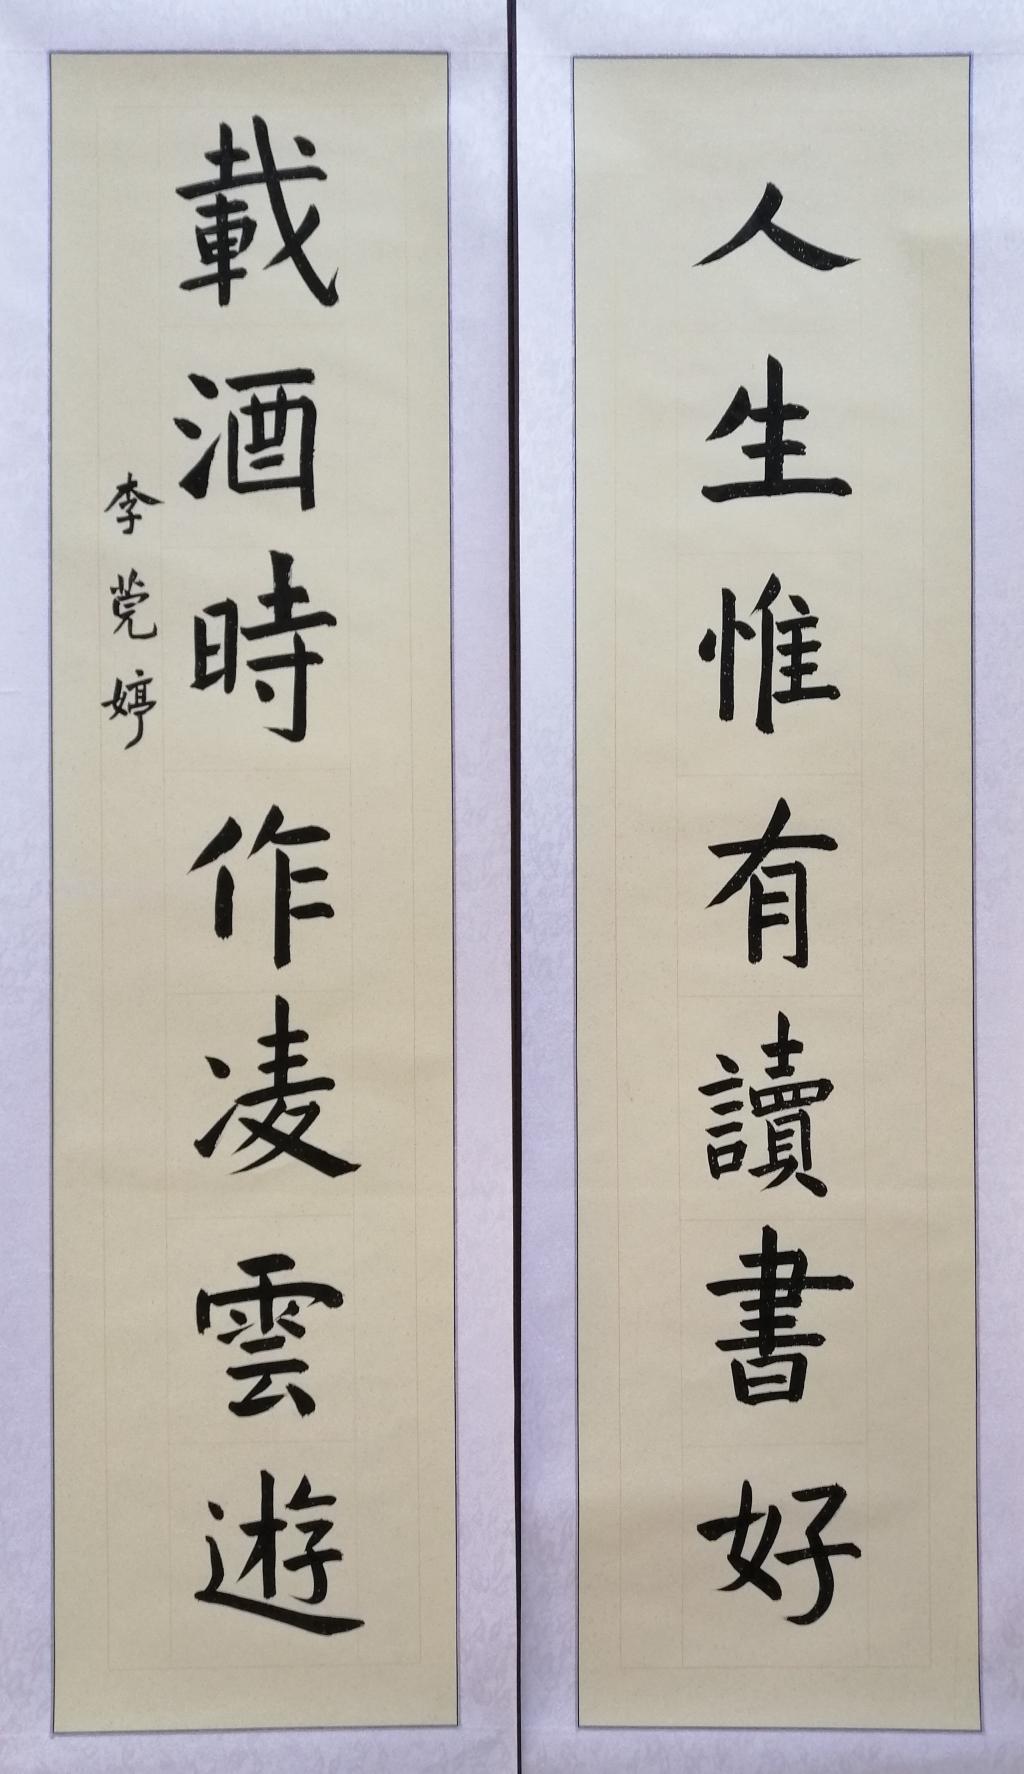 人生惟有讀書好
載酒時作凌雲遊
李莞婷